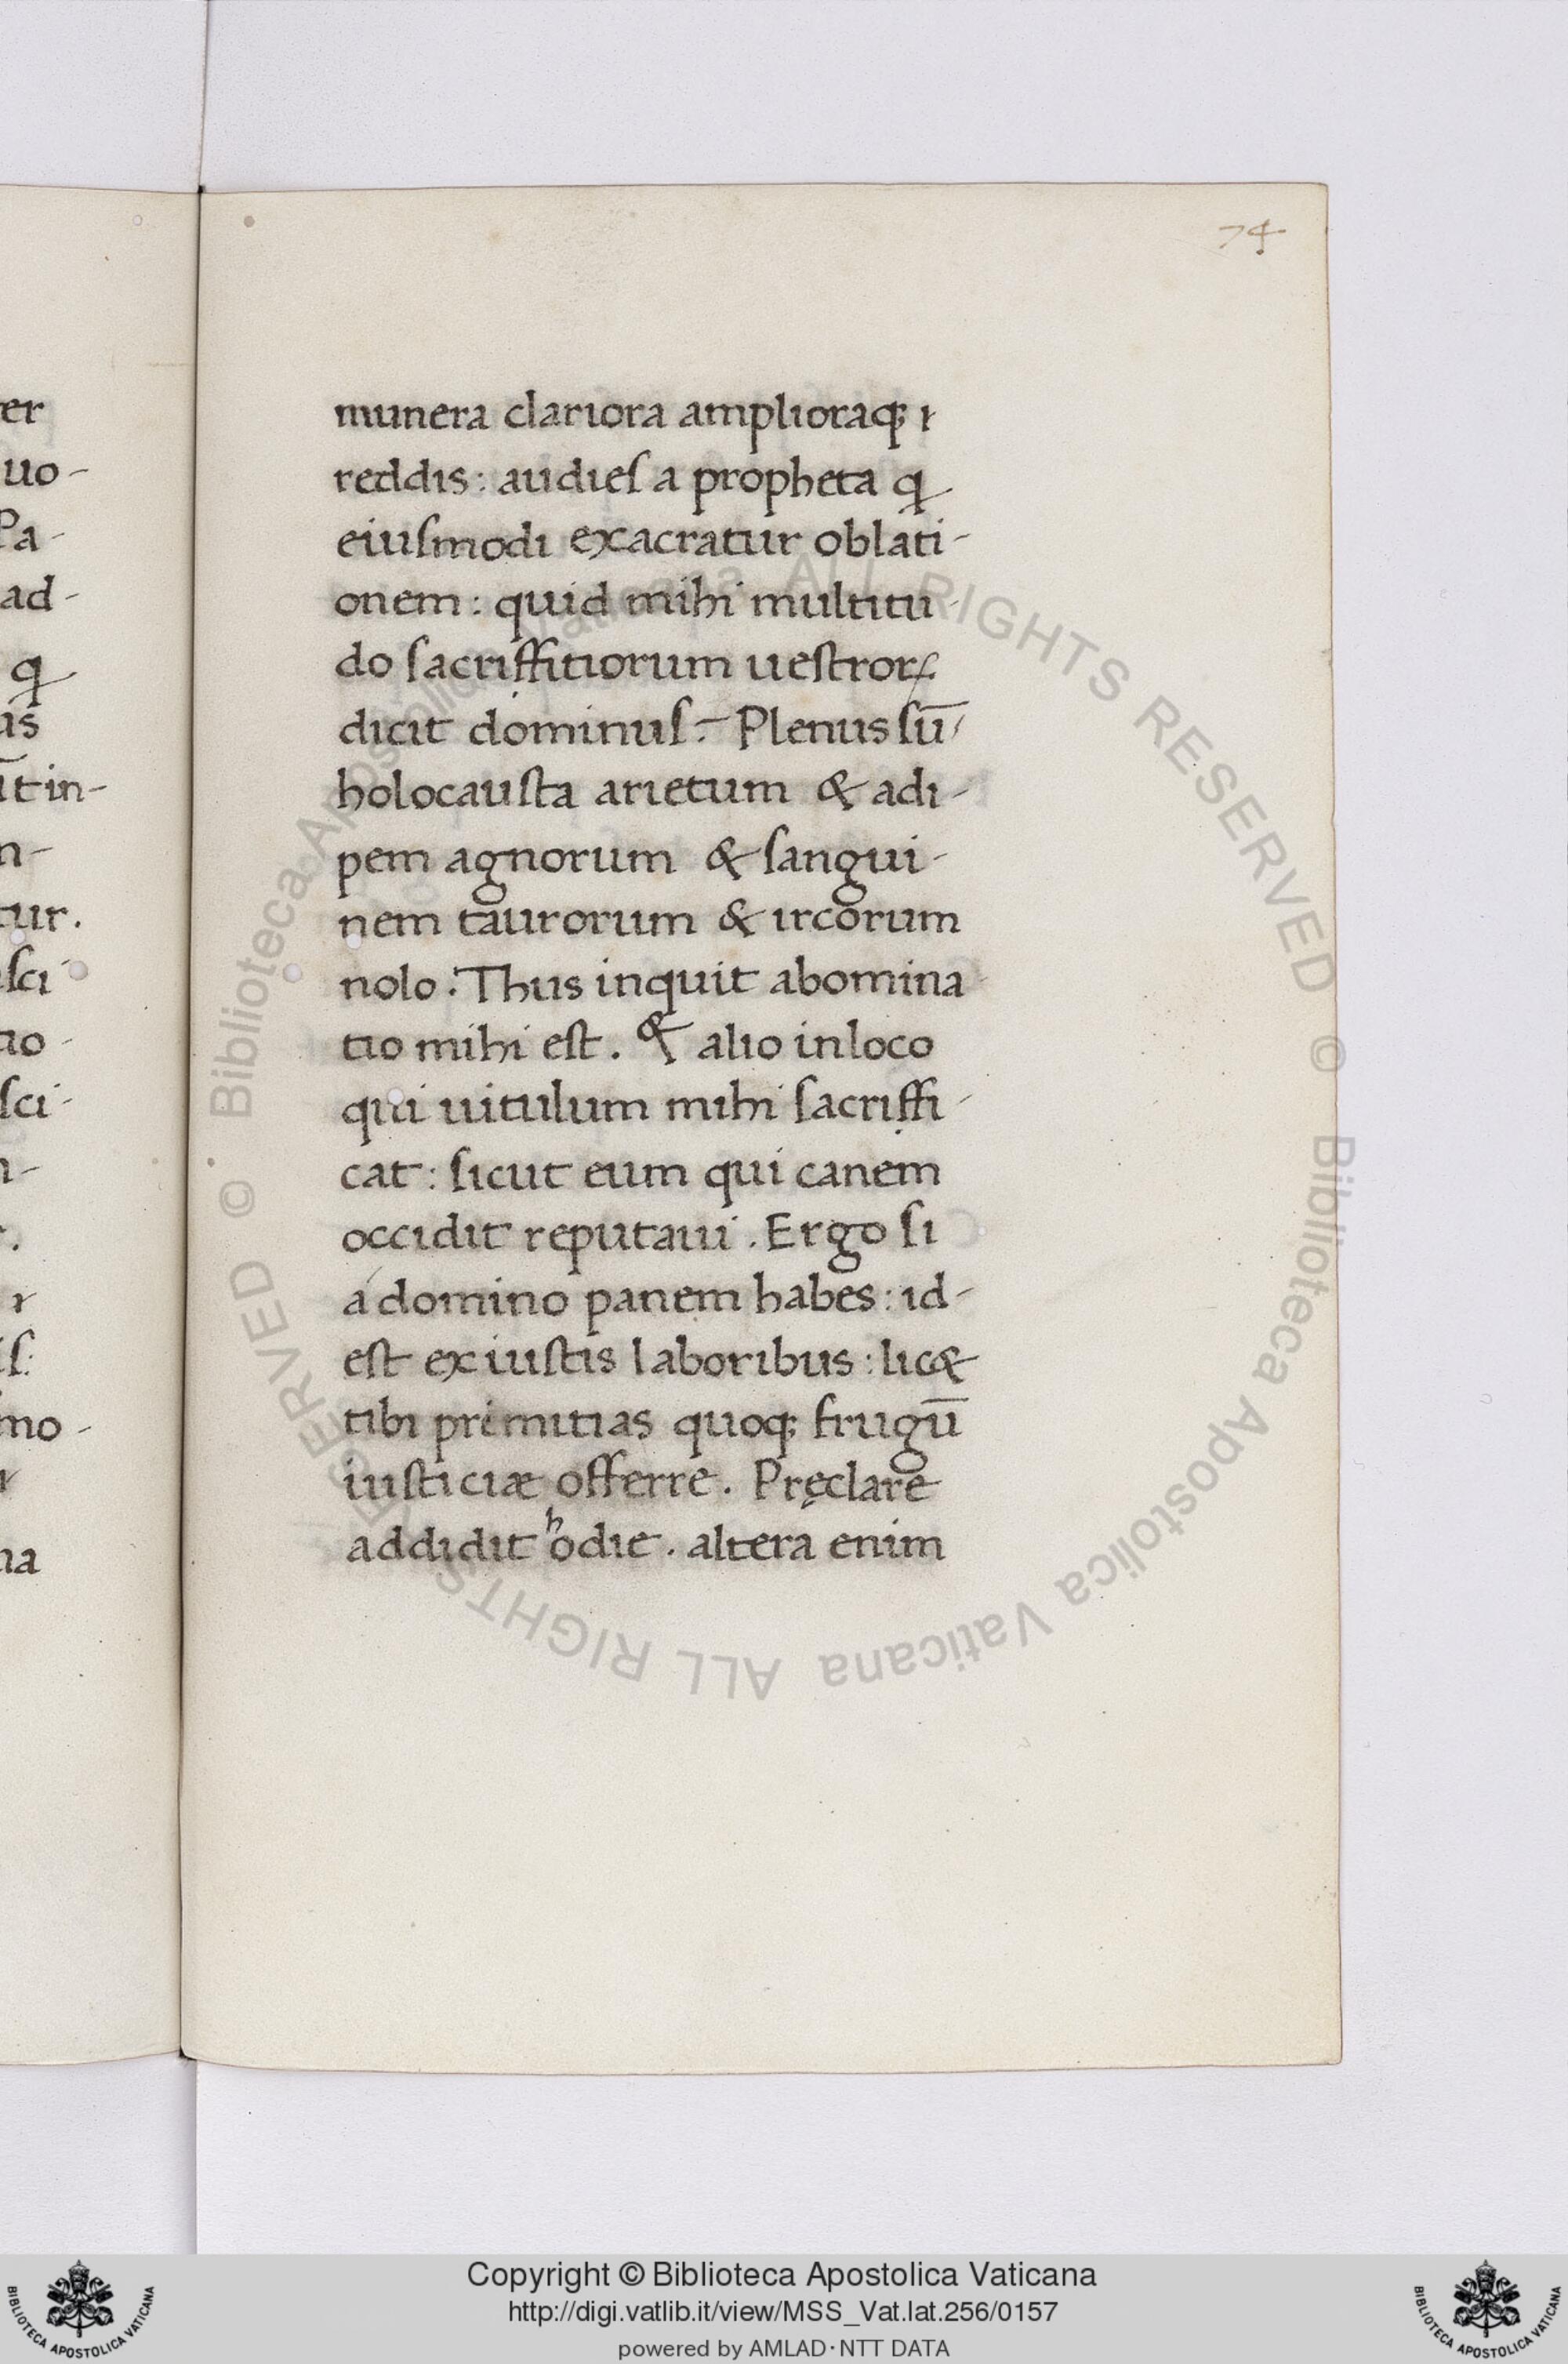 74
er
uo-
Pa-
ad-
ꝙ
us
ūt in-
n-
tur.
sci
tio-
sci-
n-
r
is:
mo-
r
na
munera clariora amplioraq; r
reddis: audies a propheta ꝙ
eiusmodi exacratur oblati-
onem: quid mihi multitu-
do sacriffitiorum uestrorꝝ
dicit dominus? Plenus sū
holocausta arietum & adi-
pem agnorum & sangui-
nem taurorum & ircorum
nolo. Thus inquit abomina
tio mihi est. & alio in loco
qui uitulum mihi sacriffi-
cat: sicut eum qui canem
occidit reputaui. Ergo si
á domino panem habes: id-
est ex iustis laboribus: lic&
tibi primitias quoq; frugū
iusticiæ offerre. Pręclare
addidit hodie. altera enim
© Biblioteca Apostolica Vaticana ALL RIGHTS RESERVED © Biblioteca Apostolica Vaticana ALL RIGHTS RESERVED
Copyright © Biblioteca Apostolica Vaticana
http://digi.vatlib.it/view/MSS_Vat.lat.256/0157
powered by AMLAD·NTT DATA
BIBLIOTECA APOSTOLICA VATICANA
BIBLIOTECA APOSTOLICA VATICANA